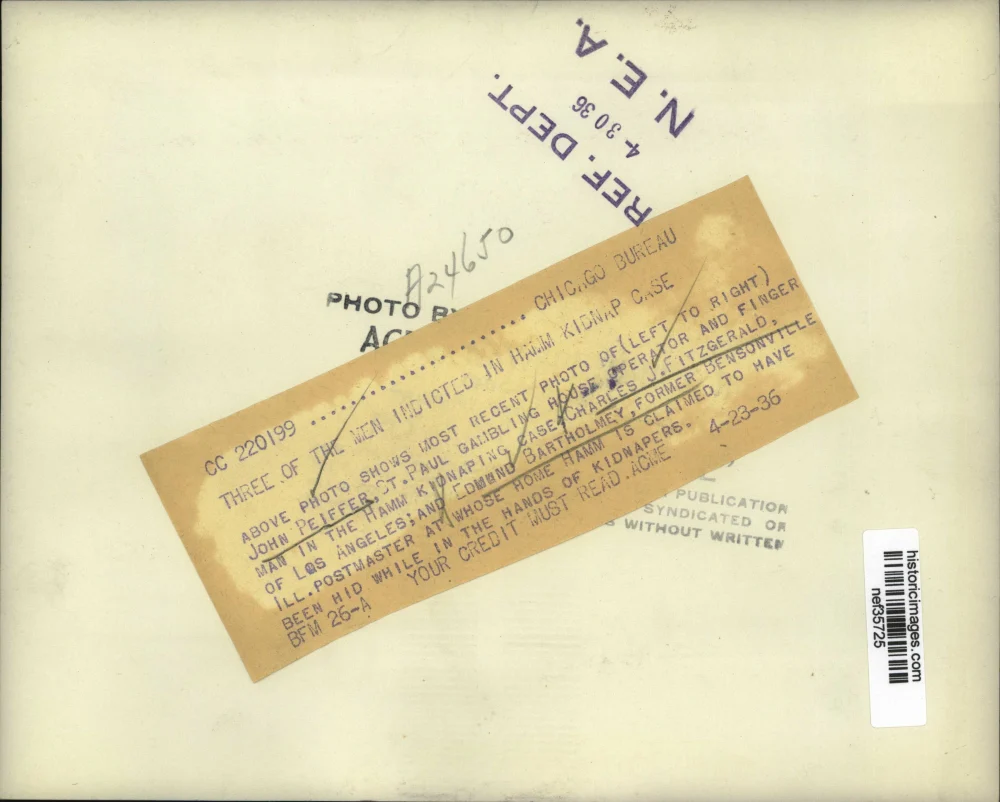 N. E. A.
4-30 36
REF. DEPT.
A24650
PHOTO BY
CC 220199 .......................... CHICAGO BUREAU
THREE OF THE MEN INDICTED IN HAMM KIDNAP CASE
ABOVE PHOTO SHOWS MOST RECENT PHOTO OF(LEFT TO RIGHT)
JOHN PEIFFER,ST.PAUL GAMBLING HOUSE OPERATOR AND FINGER
MAN IN THE HAMM KIDNAPING CASE;CHARLES J.FITZGERALD,
OF LOS ANGELES;AND EDMUND BARTHOLMEY,FORMER BENSONVILLE
ILL.POSTMASTER AT WHOSE HOME HAMM IS CLAIMED TO HAVE
BEEN HID WHILE IN THE HANDS OF KIDNAPERS.
BFM 26-A YOUR CREDIT MUST READ ACME 4-23-36
PUBLICATION
SYNDICATED OR
WITHOUT WRITTEN
historicimages.com
nef35725